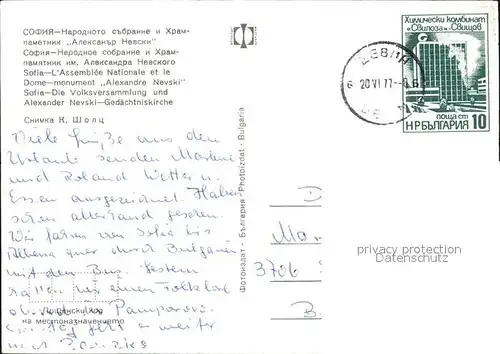 СОФИЯ—Народното събрание и Храм-
паметник „Александър Невски"
—Народное собрание и Храм-
памятник им. Александра Невского
Sofia—L'Assemblée Nationale et le
Dome—monument „Alexandre Nevski"
Sofia—Die Volksversammlung und
Alexander Nevski—Gedächtniskirche
Снимка К. Шолц
Химически комбинат
„Свилоза" Свищов
поща ст
НР БЪЛГАРИЯ 10
20 VI 77
Viele Grüße aus dem
Urlaub senden
und Roland Wetter u.
Essen ausgezeichnet. Haben
schon allerhand gesehen.
Wir fahren von Sofia bis
quer durch Bulgarien
mit dem Bus. Gestern
wir einen Folklore
Pamporovo.
geht es weiter
nach
Фотоиздат - България - Photoizdat - Bulgaria
Пощенски код
на местоназначението
D
3706
privacy protection
Datenschutz